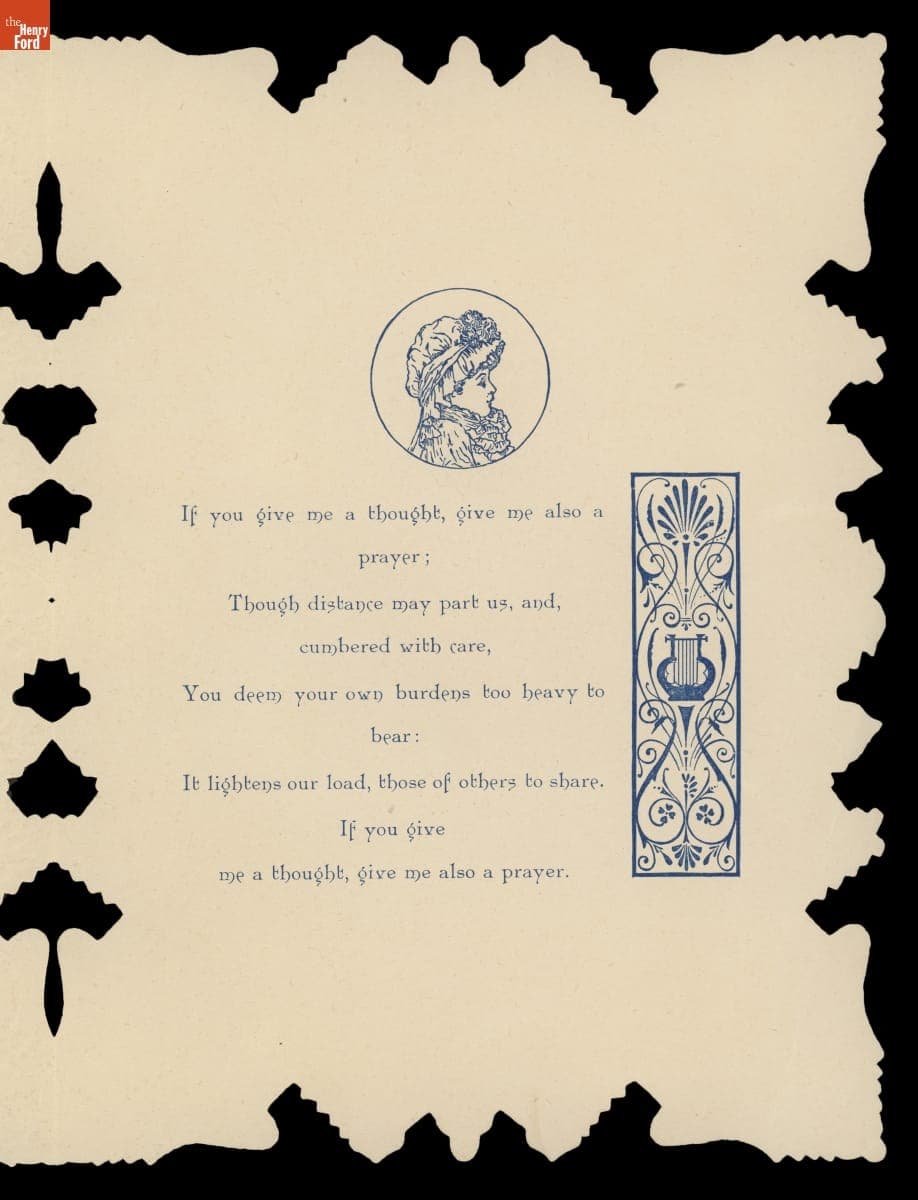 the
Henry
Ford
If you give me a thought, give me also a
prayer;
Though distance may part us, and,
cumbered with care,
You deem your own burdens too heavy to
bear:
It lightens our load, those of others to share.
If you give
me a thought, give me also a prayer.